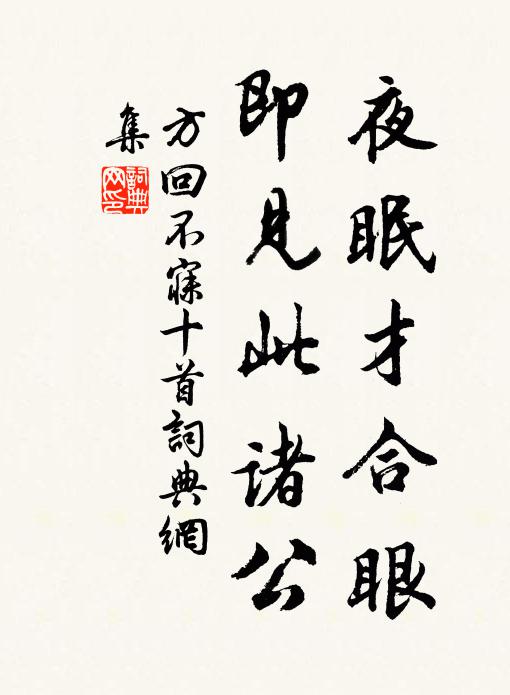 夜眠才合眼
即見此諸公
方回不寐十首詞典網
集
詞典
网印